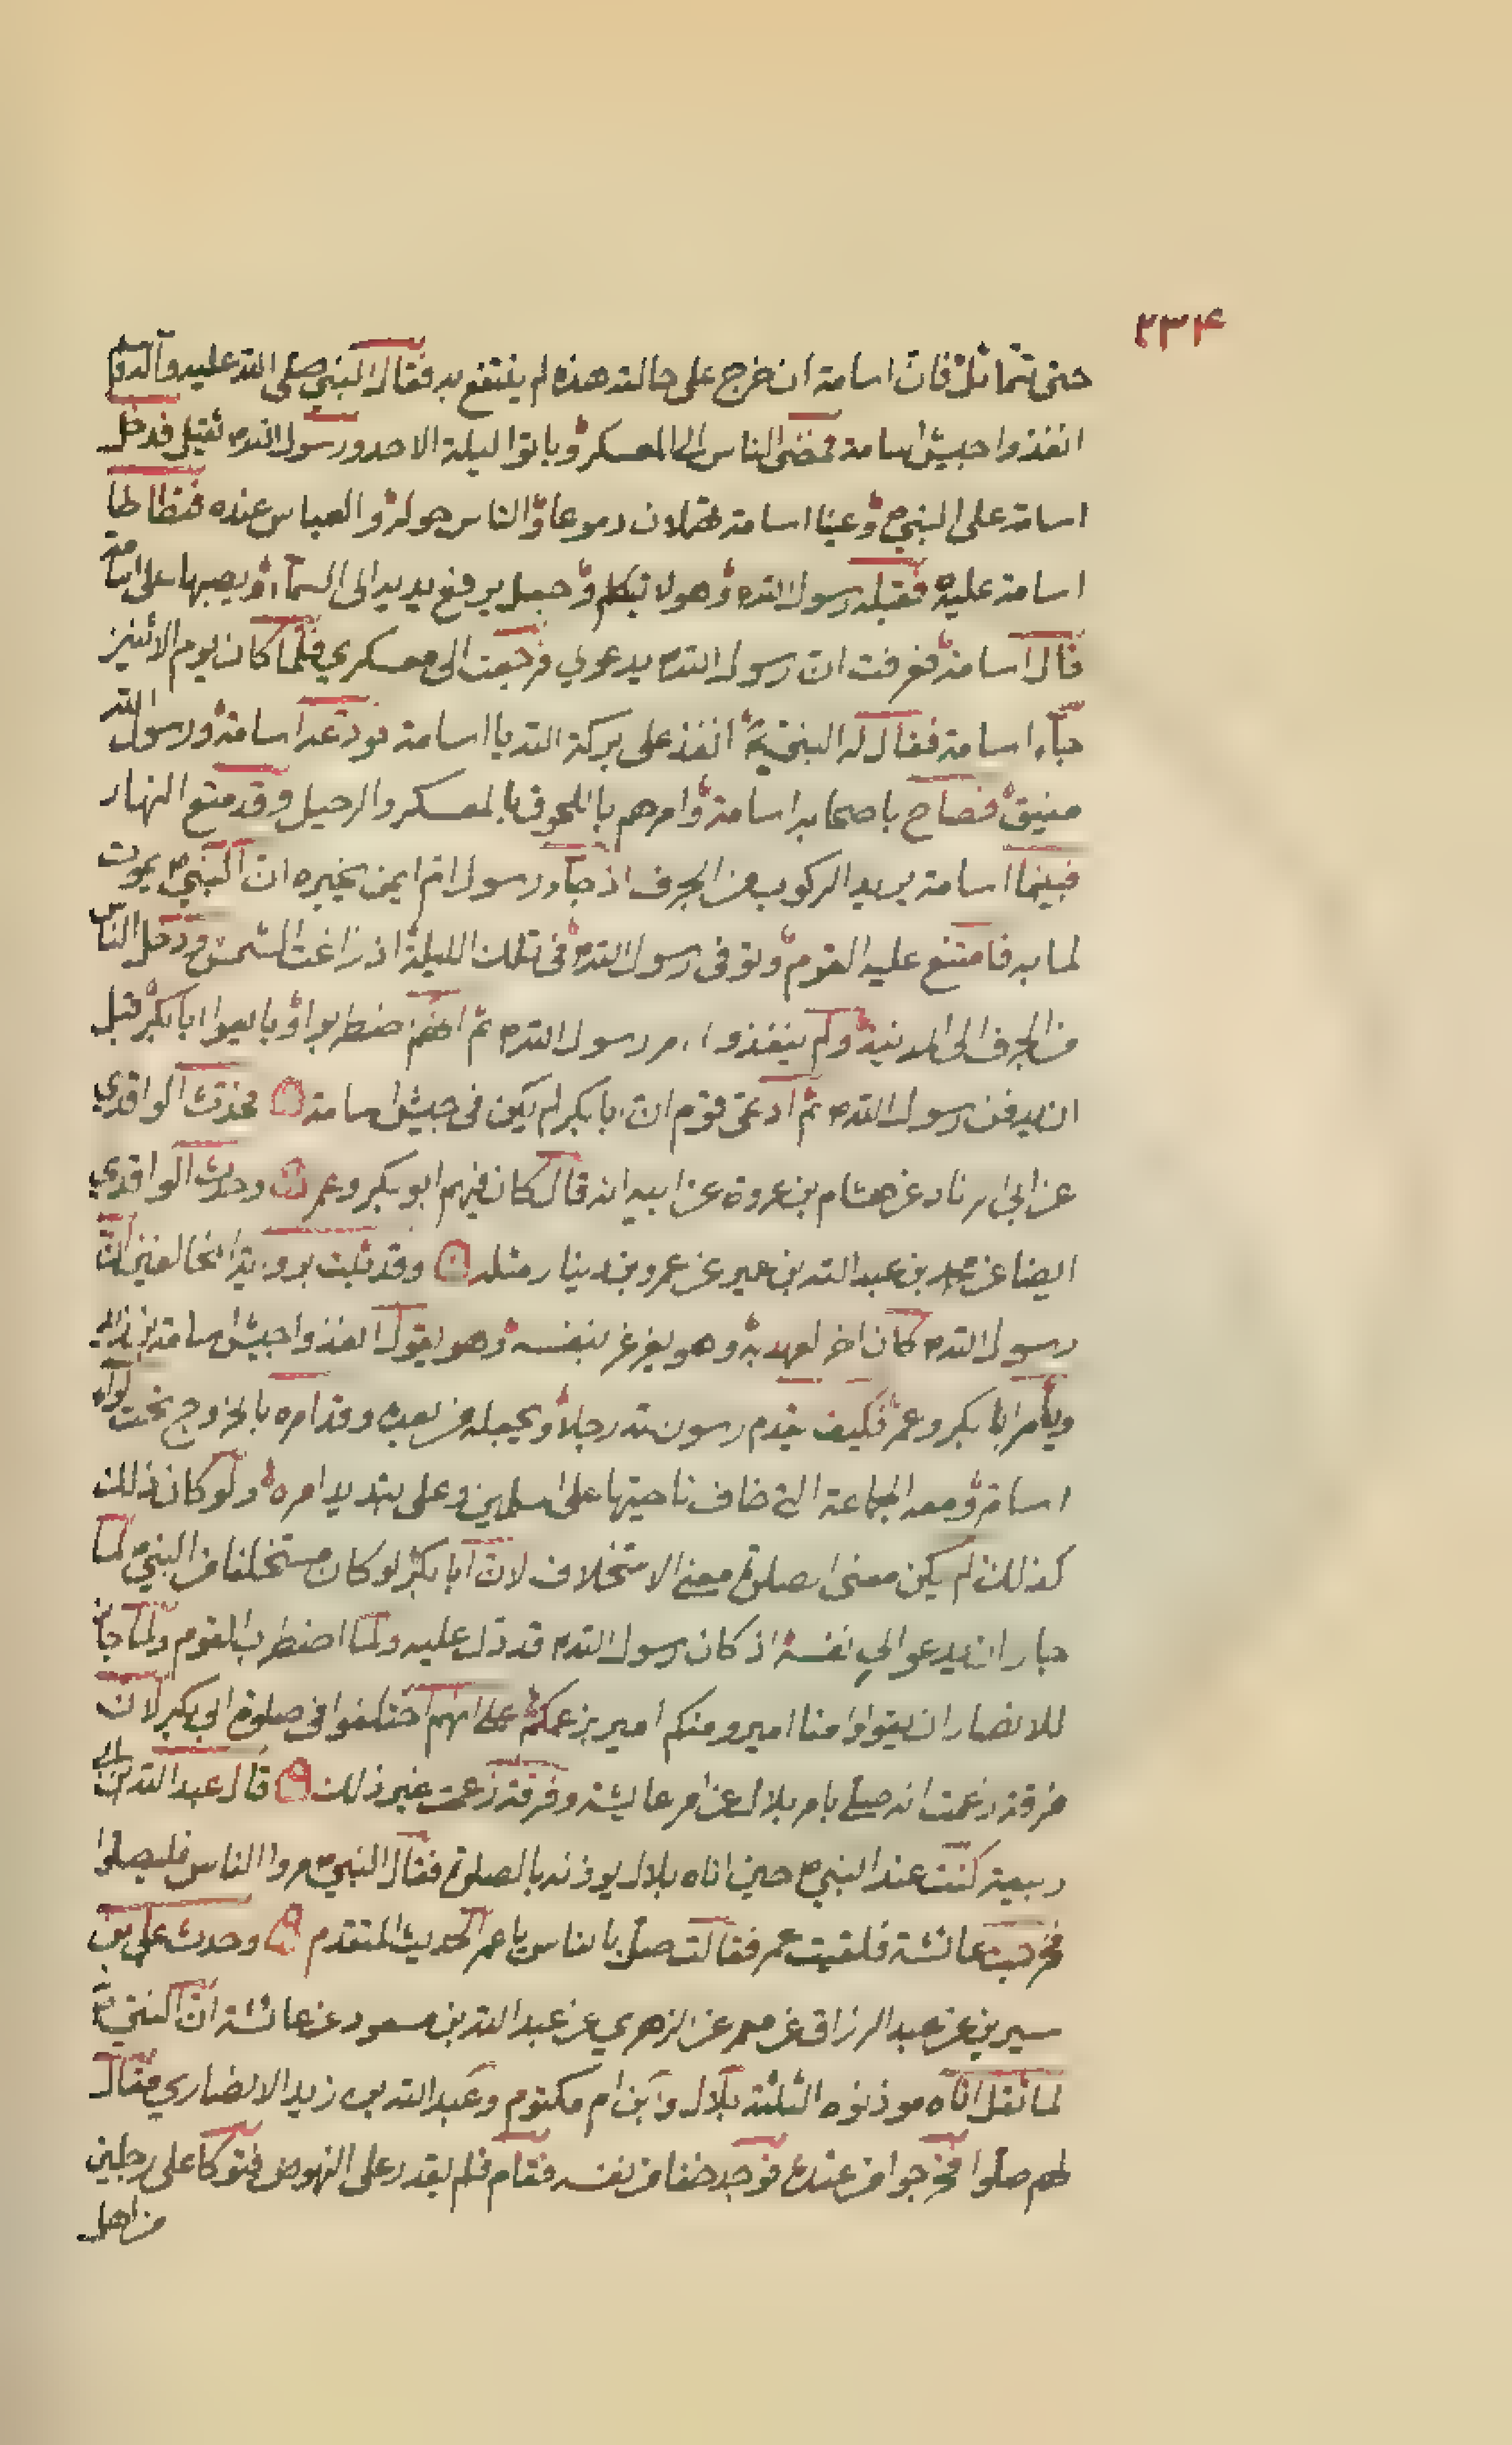 ٢٣۴
حتى تتماثل فان اسامة ان خرج على حالته هذه لم ينتفع به فقال النبي صلى الله عليه وآله وسلم
انفذوا جيش اسامة فمضى الناس الى المعسكر وباتوا ليلة الاحد ورسول الله ثقيل فدخل
اسامة على النبي وعينا اسامة تهملان دموعا والناس حوله والعباس عنده فتطاطا
اسامة عليه فقبله رسول الله وهو لا يتكلم وجعل يرفع يديه الى السماء ويصبها على اسامة
قال اسامة فعرفت ان رسول الله يدعو لي فرجعت الى معسكري فلما كان يوم الاثنين
جاء اسامة فقال له النبي انفذ على بركة الله يا اسامة فودعه اسامة ورسول الله
مفيق فصاح باصحابه اسامة وامرهم باللحوق بالمعسكر والرحيل وقد متع النهار
فبينما اسامة يريد الركوب من الجرف اذ جاء رسول ام ايمن يخبره ان النبي يموت
لما به فامتنع عليه القوم وتوفى رسول الله في تلك الليلة اذ زاغت الشمس ودخل الناس
من الجرف الى المدينة ولم ينفذوا امر رسول الله ثم انهم اضطربوا وبايعوا ابا بكر قبل
ان يدفن رسول الله ثم ادعى قوم ان ابا بكر لم يكن في جيش اسامة فحدث الواقدي
عن ابي زناد عن هشام بن عروة عن ابيه انه قال كان فيهم ابو بكر وعمر وحدث الواقدي
ايضا عن محمد بن عبد الله بن عمير عن عمرو بن دينار مثله وقد ثبت برواية المخالفين ان
رسول الله كان اخر لعهد به وهو يغرغر بنفسه وهو يقول انفذوا جيش اسامة بن زيد
ويامر ابا بكر وعمر فكيف يقدم رسول الله رجلا ويجعله من بعده وقد امره بالخروج تحت لواء
اسامة ومعه الجماعة التي خاف ناحيتها على المسلمين وعلى تبديد امره ولو كان ذلك
كذلك لم يكن معنى الصلوة معنى الاستخلاف لان ابا بكر لو كان مستخلفا من النبي لما
جاز ان يدعو الى نفسه اذ كان رسول الله قد دل عليه ولما اضطرب القوم ولما جاز
للانصار ان يقولوا منا امير ومنكم امير بزعمكم على انهم اختلفوا في صلوة ابي بكر لان
فرقة زعمت انه صلى بامر بلال عن امر عايشة وفرقة زعمت غير ذلك قال عبد الله بن
ربيعة كنت عند النبي حين اتاه بلال يوذنه بالصلوة فقال النبي مروا الناس فليصلوا
فخرجت عائشة فلقيت عمر فقالت صل بالناس يا عمر الحديث المتقدم وحدث علي بن
سيرين عن عبد الرزاق عن معمر عن الزهري عن عبد الله بن مسعود عن عائشة ان النبي
لما ثقل اتاه موذنوه الثلثة بلال وابن ام مكتوم وعبد الله بن زيد الانصاري فقال
لهم صلوا فخرجوا من عنده فوجد خفا من نفسه فقام فلم يقدر على النهوض فتوكا على رجلين
من اهل